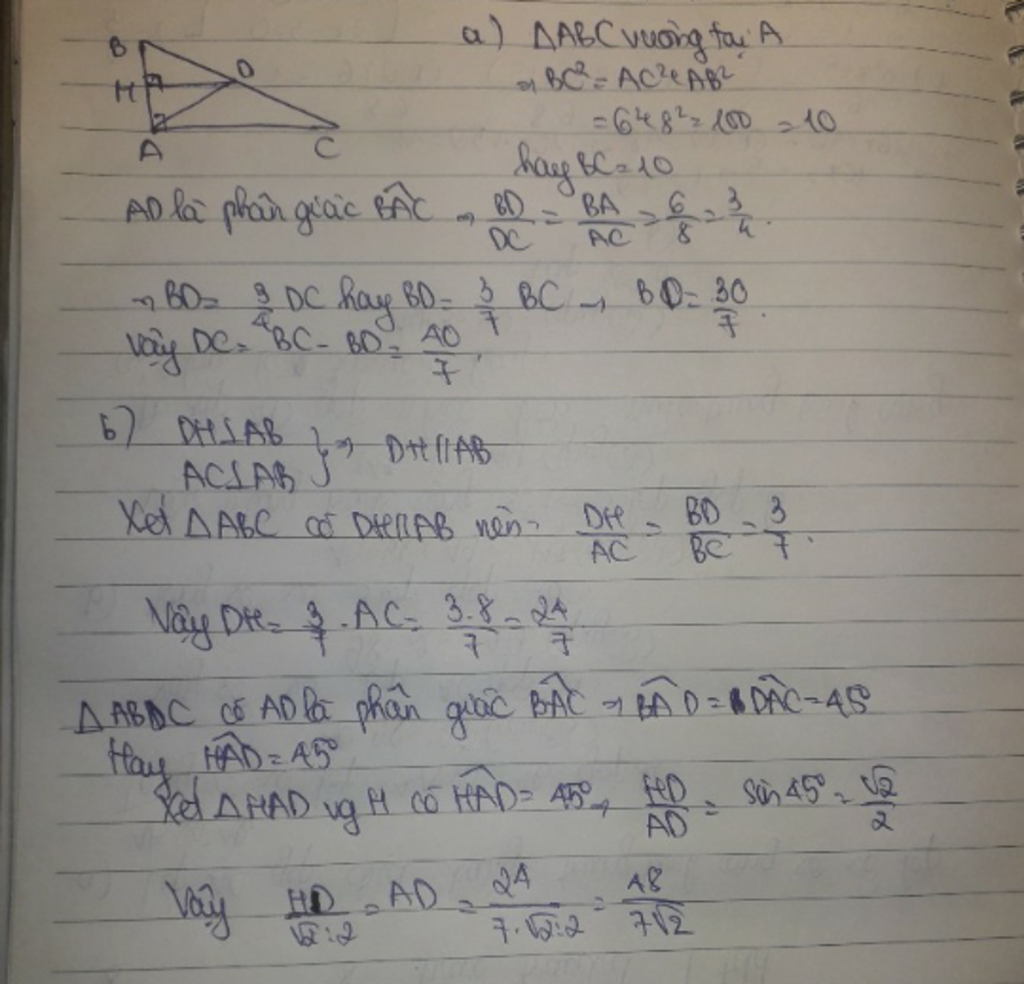 B
H
D
A
C
a) ΔABC vuông tại A
⇒ BC² = AC² + AB²
= 6² + 8² = 100 = 10
hay BC = 10
AD là phân giác BÂC ⇒ BD/DC = BA/AC = 6/8 = 3/4.
⇒ BD = 3/4 DC hay BD = 3/7 BC → BD = 30/7.
Vậy DC = BC - BD = 40/7.
b) DH⊥AB
AC⊥AB } ⇒ DH//AB
Xét ΔABC có DH//AB nên DH/AC = BD/BC = 3/7.
Vậy DH = 3/7 . AC = 3.8/7 = 24/7
ΔABDC có AD là phân giác BÂC ⇒ BÂD = DÂC = 45°
Hay HÂD = 45°
Xét ΔHAD vg H có HÂD = 45° → HD/AD = sin 45° = √2/2
Vậy HD/√2:2 = AD = 24/7.√2:2 = 48/7√2